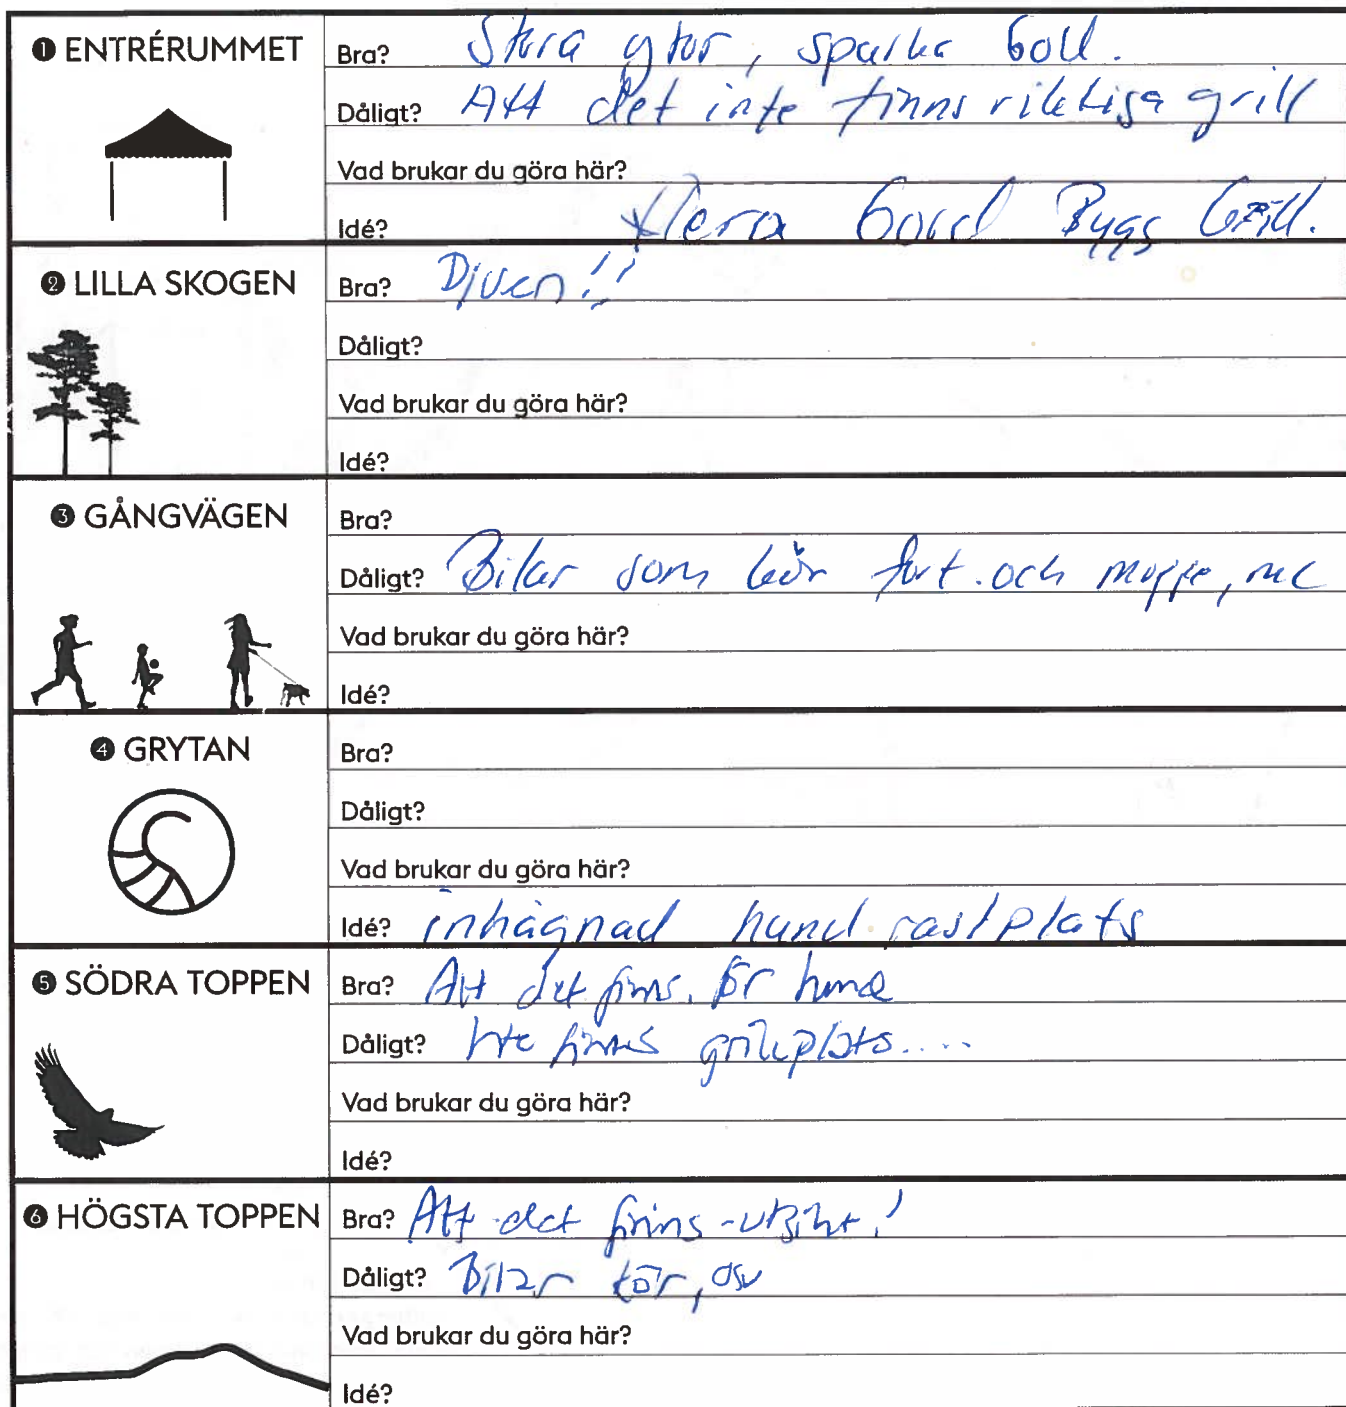 ❶ ENTRÉRUMMET
Bra? Stora ytor, sparka boll.
Dåligt? Att det inte finns riktiga grill
Vad brukar du göra här?
Idé? Flera bord Bygg Grill.
❷ LILLA SKOGEN
Bra? Djuren!!
Dåligt?
Vad brukar du göra här?
Idé?
❸ GÅNGVÄGEN
Bra?
Dåligt? Bilar som kör fort. och moppe, mc
Vad brukar du göra här?
Idé?
❹ GRYTAN
Bra?
Dåligt?
Vad brukar du göra här?
Idé? inhägnad hund rastplats
❺ SÖDRA TOPPEN
Bra? Att det finns. för hund
Dåligt? Inte finns grillplats....
Vad brukar du göra här?
Idé?
❻ HÖGSTA TOPPEN
Bra? Att det finns - utsikt!
Dåligt? Bilar kör, osv
Vad brukar du göra här?
Idé?